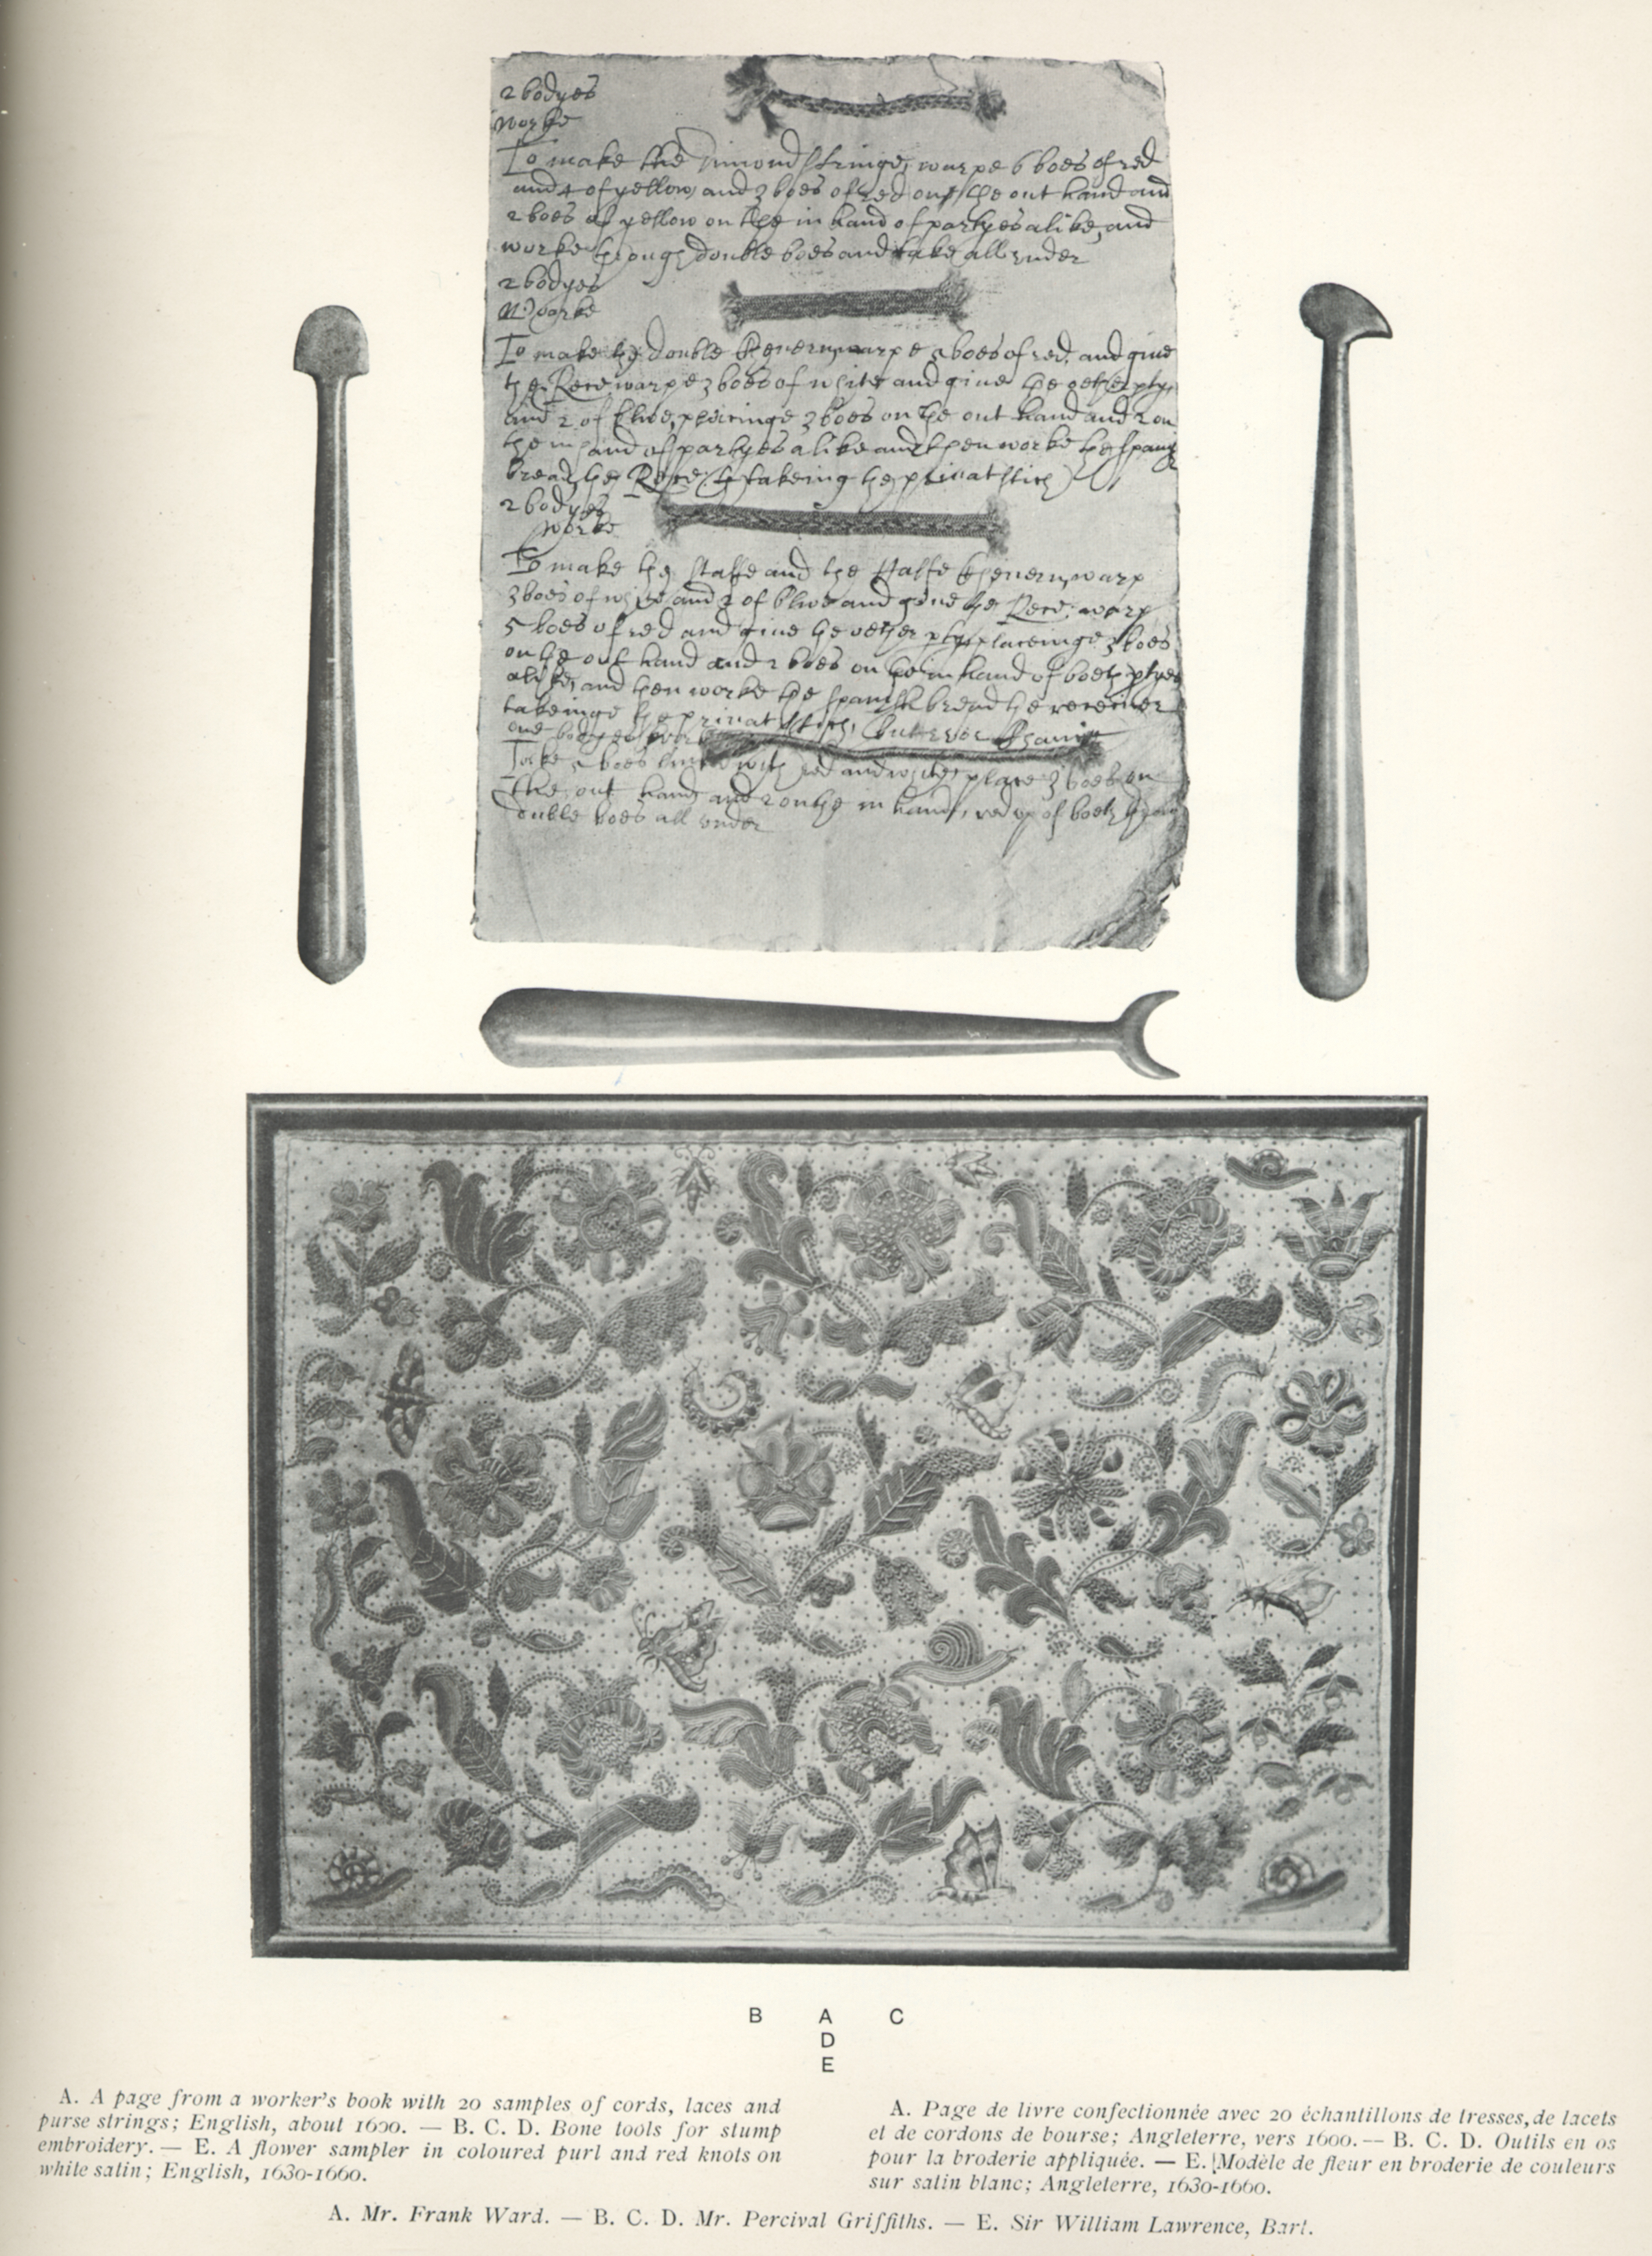 2 bodyes
worke
To make the Dimond stringe, warpe 6 boes of red
and 4 of yellow, and 3 boes of red on the out hand and
2 boes of yellow on the in hand of partyes alike, and
worke through double boes and take all under
2 bodyes
Worke
To make the double warpe boes of red, and give
the warpe 3 boes of white and give the other pty,
and 2 of blwe, placinge 3 boes on the out hand and 2 on
the in hand of partyes alike and then worke the
bread, the takeing the privat stich
2 bodyes
Worke
To make the and the warp
3 boes of white and 2 of blwe and give the warp
5 boes of red and give the other pty, placeinge 3 boes
on the out hand and 2 boes on the in hand of both ptyes
alike, and then worke the spanish bread the receiver
takeinge the privat stich,
one bodyes worke
Take 5 boes with red and white, place 3 boes on
the out hand and 2 on the in hand, of both
double boes all under
B A C
D
E
A. A page from a worker's book with 20 samples of cords, laces and
purse strings; English, about 1600. — B. C. D. Bone tools for stump
embroidery. — E. A flower sampler in coloured purl and red knots on
white satin; English, 1630-1660.
A. Page de livre confectionnée avec 20 échantillons de tresses, de lacets
et de cordons de bourse; Angleterre, vers 1600. — B. C. D. Outils en os
pour la broderie appliquée. — E. Modèle de fleur en broderie de couleurs
sur satin blanc; Angleterre, 1630-1660.
A. Mr. Frank Ward. — B. C. D. Mr. Percival Griffiths. — E. Sir William Lawrence, Bart.